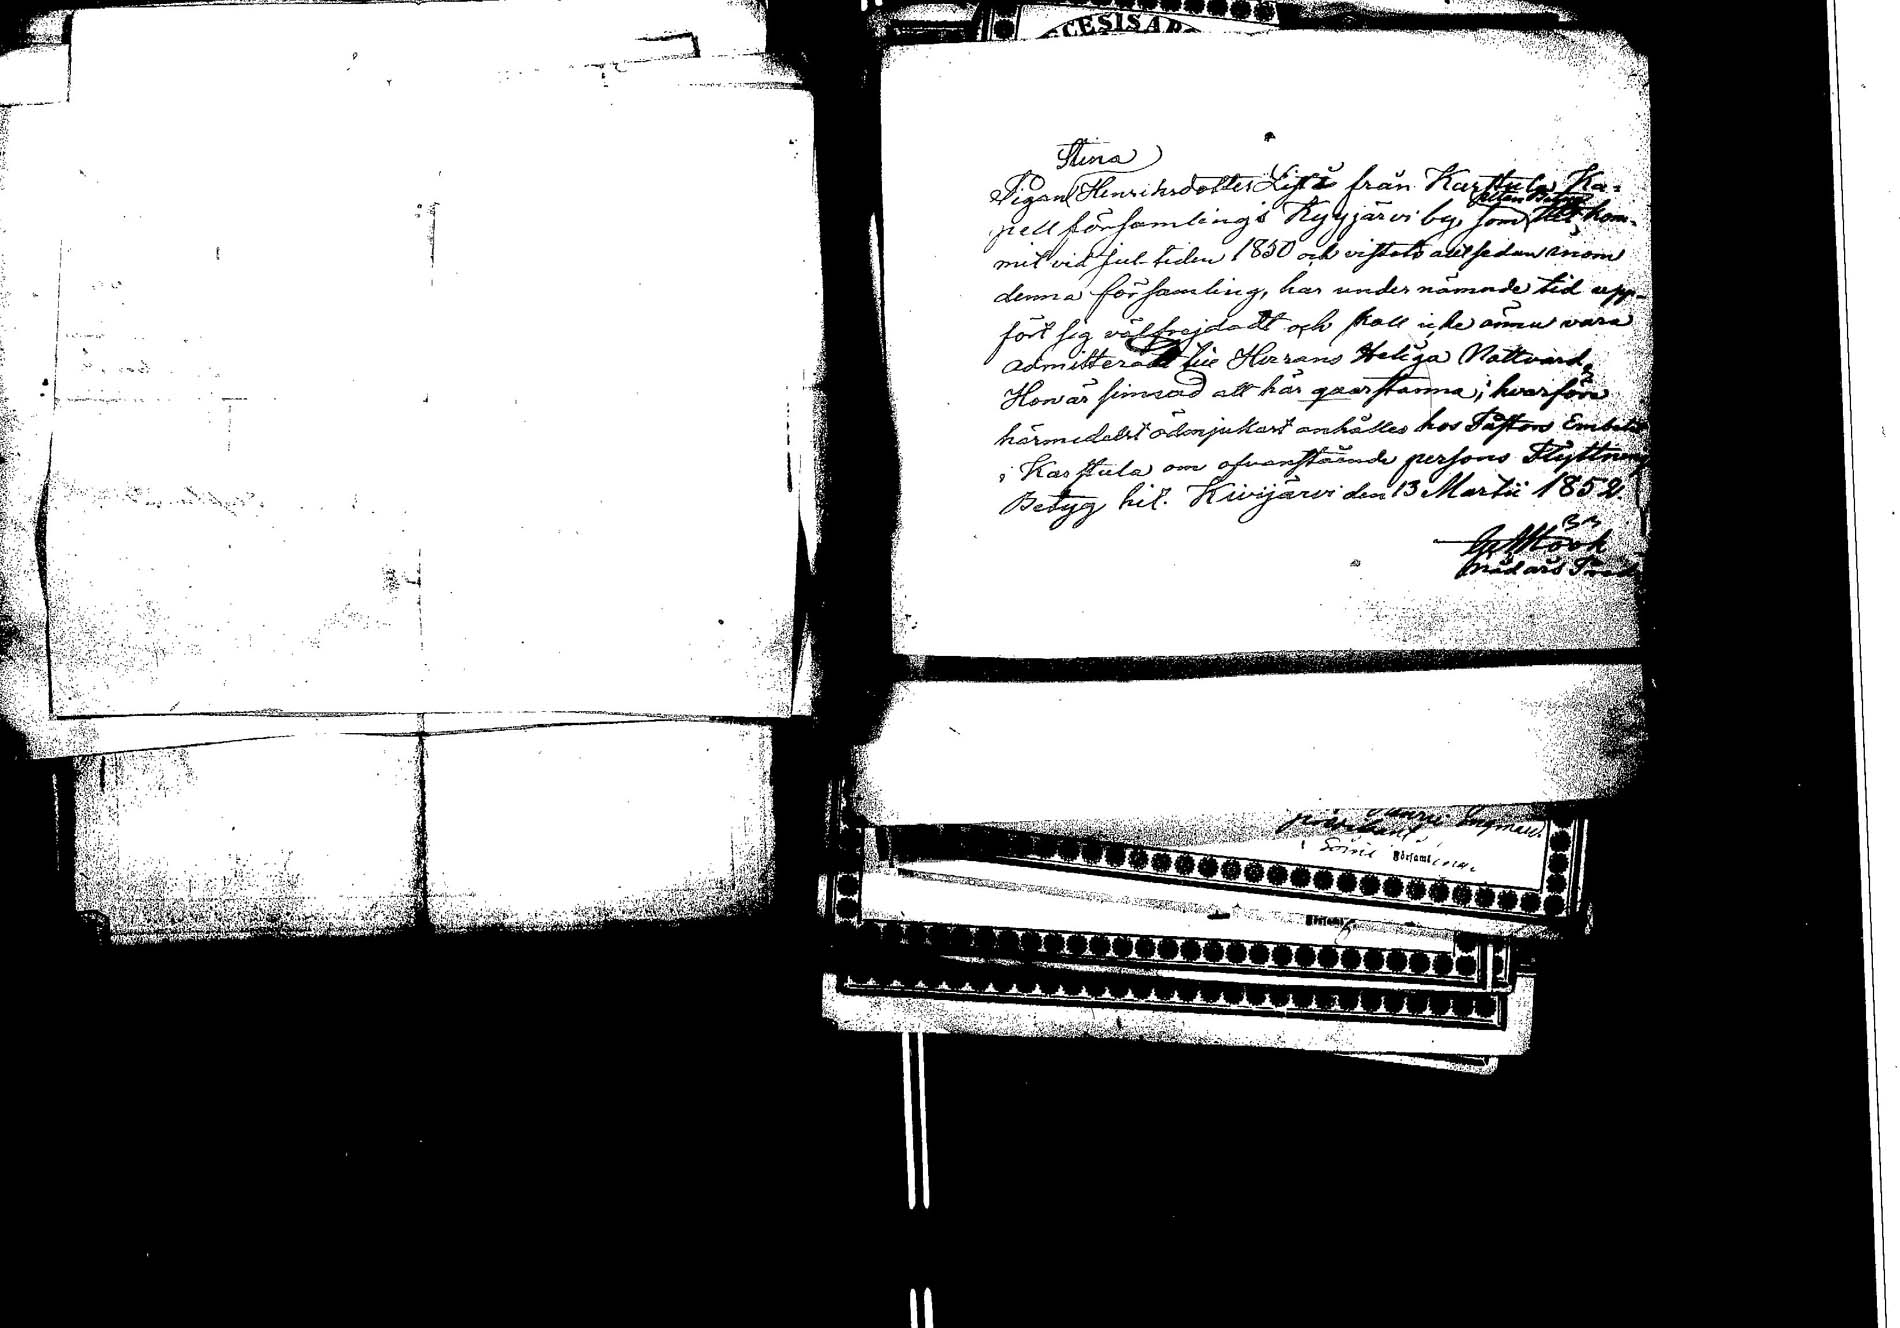 Stina
Pigan Henriksdotter från Karstula Ka-
utan Betyg
pell församlings Kyyjärvi by, som hit kom-
mit vid jul-tiden 1850 och vistats allt sedan inom
denna församling, har under nämnde tid upp-
fört sig välfrejdadt och skall icke ännu vara
admitterad till Herrans Heliga Nattvard.
Hon är sinnad att här qvarstanna; hvarföre
härmedelst ödmjukast anhålles hos Pastors Embetet
i Karstula om ofvanstående persons Flyttnings
Betyg hit. Kivijärvi den 13 Martii 1852.
Nådårs
Församl
Församl